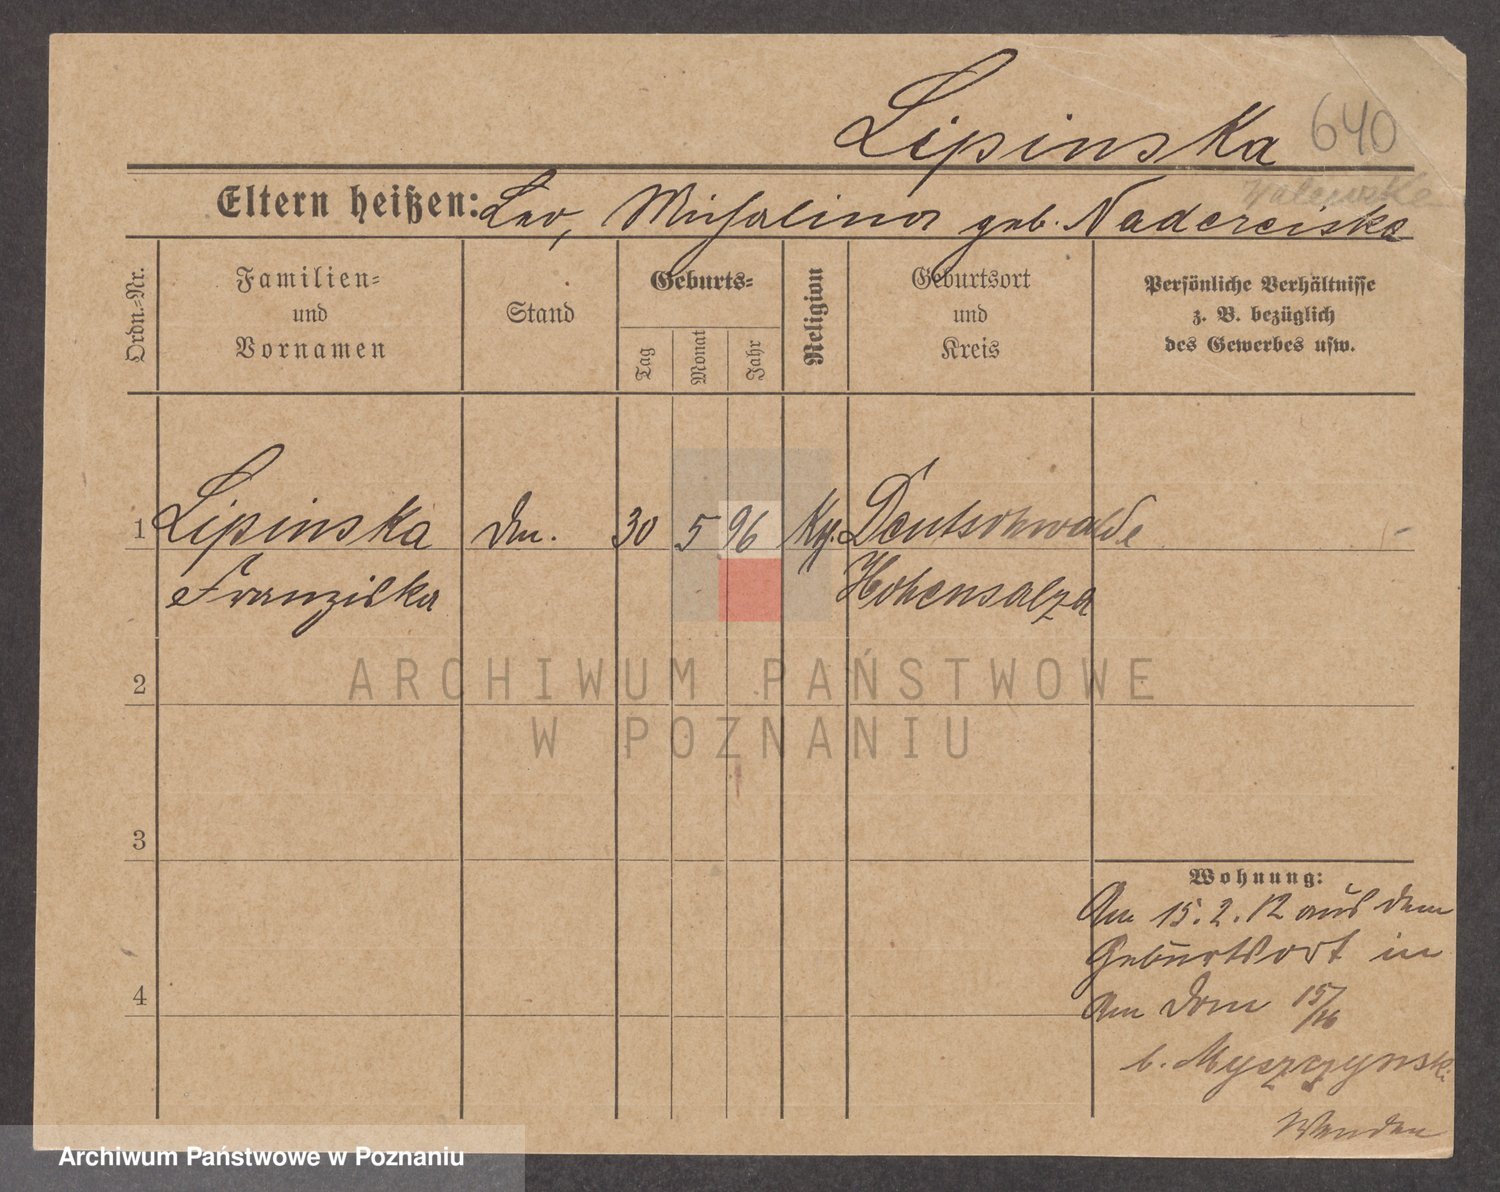 Lipinska 640
Eltern heißen: Leo, Michalina geb. Naderciska
Ordn.-Nr.
Familien-
und
Vornamen
Stand
Geburts-
Tag
Monat
Jahr
Religion
Geburtsort
und
Kreis
Persönliche Verhältnisse
z. B. bezüglich
des Gewerbes usw.
1 Lipinska 30 5 96 Deutschwalde
Franziska Hohensalza
2
ARCHIWUM PAŃSTWOWE
W POZNANIU
3
Wohnung:
Am 15.2.12 aus dem
Geburtsort in
4 Am Dom 15/16
b. Myszczynski
Wenden
Archiwum Państwowe w Poznaniu